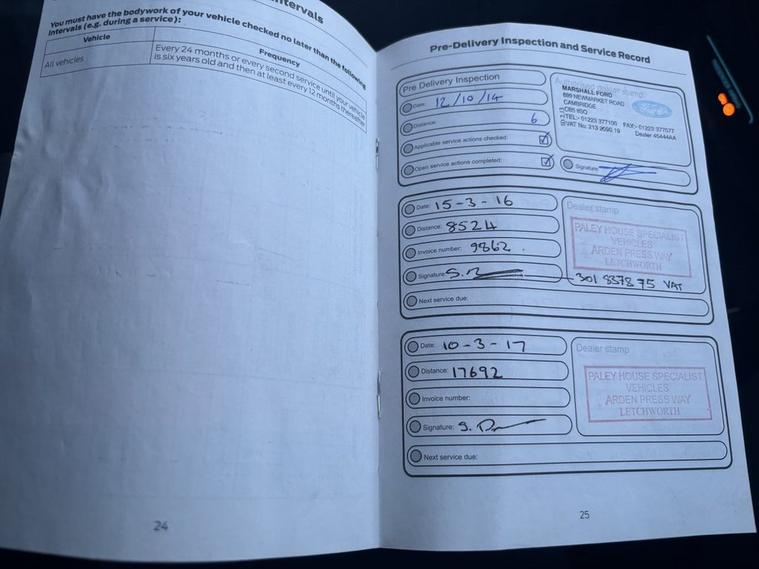 ntervals
You must have the bodywork of your vehicle checked no later than the following
intervals (e.g. during a service):
Vehicle
Frequency
All vehicles
Every 24 months or every second service until your vehicle
is six years old and then at least every 12 months thereafter
24
Pre-Delivery Inspection and Service Record
Pre Delivery Inspection
Date: 12/10/14
Distance: 6
Applicable service actions checked:
Open service actions completed:
Authorised dealer stamp:
MARSHALL FORD
699 NEWMARKET ROAD
CAMBRIDGE
CB5
TEL:- 01223 377100 FAX:- 01223 377577
VAT No: 213 2690 19 Dealer 45444AA
Ford
Signature:
Date: 15-3-16
Distance: 8524
Invoice number: 9862.
Signature:
Next service due:
Dealer stamp
PALEY HOUSE SPECIALIST
VEHICLES
ARDEN PRESS WAY
LETCHWORTH
301 8378 75 VAT
Date: 10-3-17
Distance: 17692
Invoice number:
Signature:
Next service due:
Dealer stamp
PALEY HOUSE SPECIALIST
VEHICLES
ARDEN PRESS WAY
LETCHWORTH
25